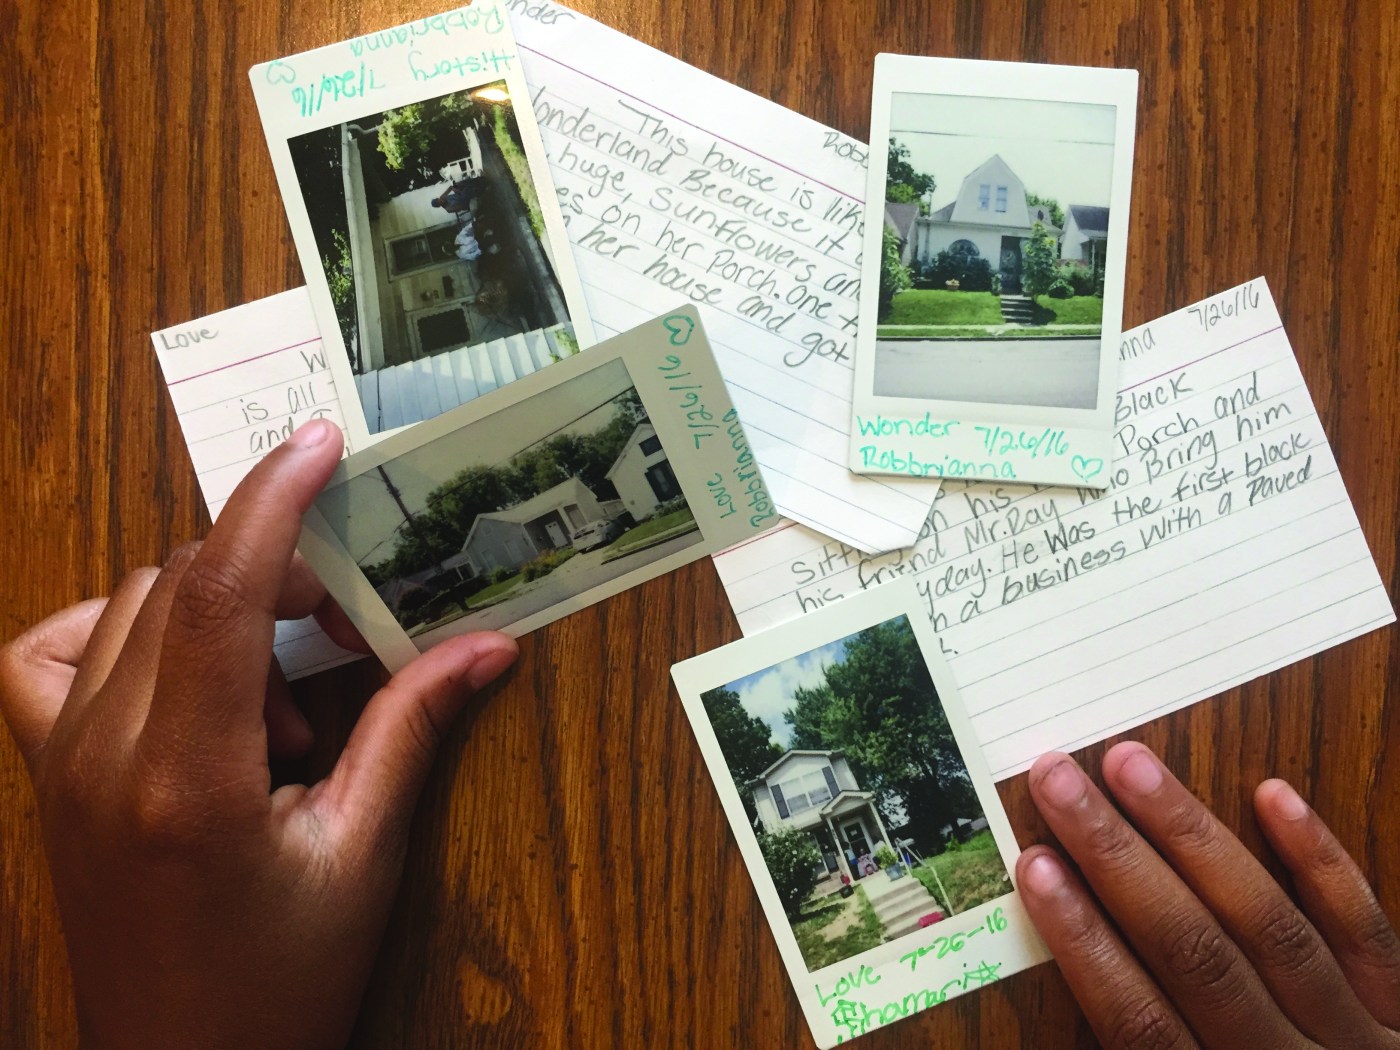 History
Robbrianna
7/26/16
Wonder
This house is like
Wonderland Because it
huge, Sunflowers and
on her Porch. One
her house and got
Love
is all
and I
Love
Robbrianna
7/26/16
Wonder 7/26/16
Robbrianna
7/26/16
Black
Porch and
Sitting on his
friend Mr. Ray who Bring him
He was the first black
a business with a Paved
Love 7-26-16
Shamari